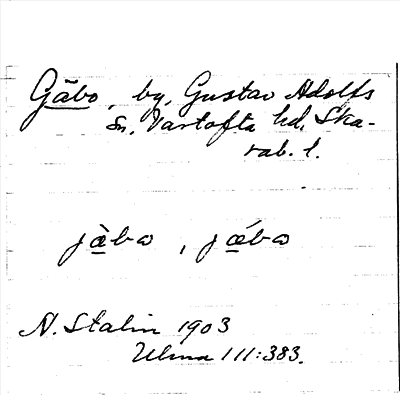 Gäbo, by, Gustav Adolfs
Sn, Vartofta hd. Ska-
rab. l.
jàbo, jǽbo
N. Stalin 1903
Ulma 111:383.